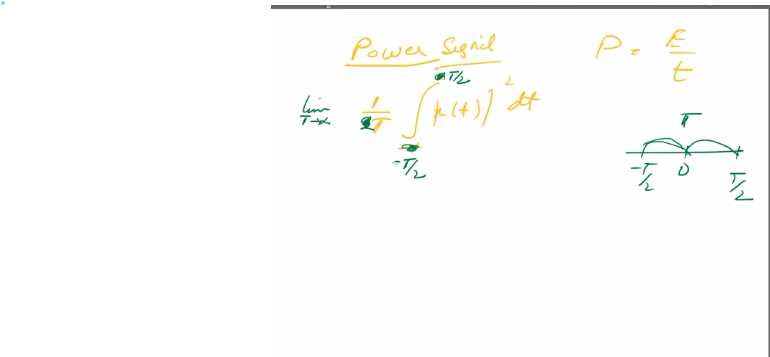 Power Signal
P = E/t
lim T→∞ 1/T ∫ -T/2 T/2 |x(t)|² dt
T
-T/2 0 T/2